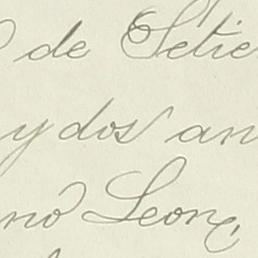 de Setie
y dos an
no Leon,